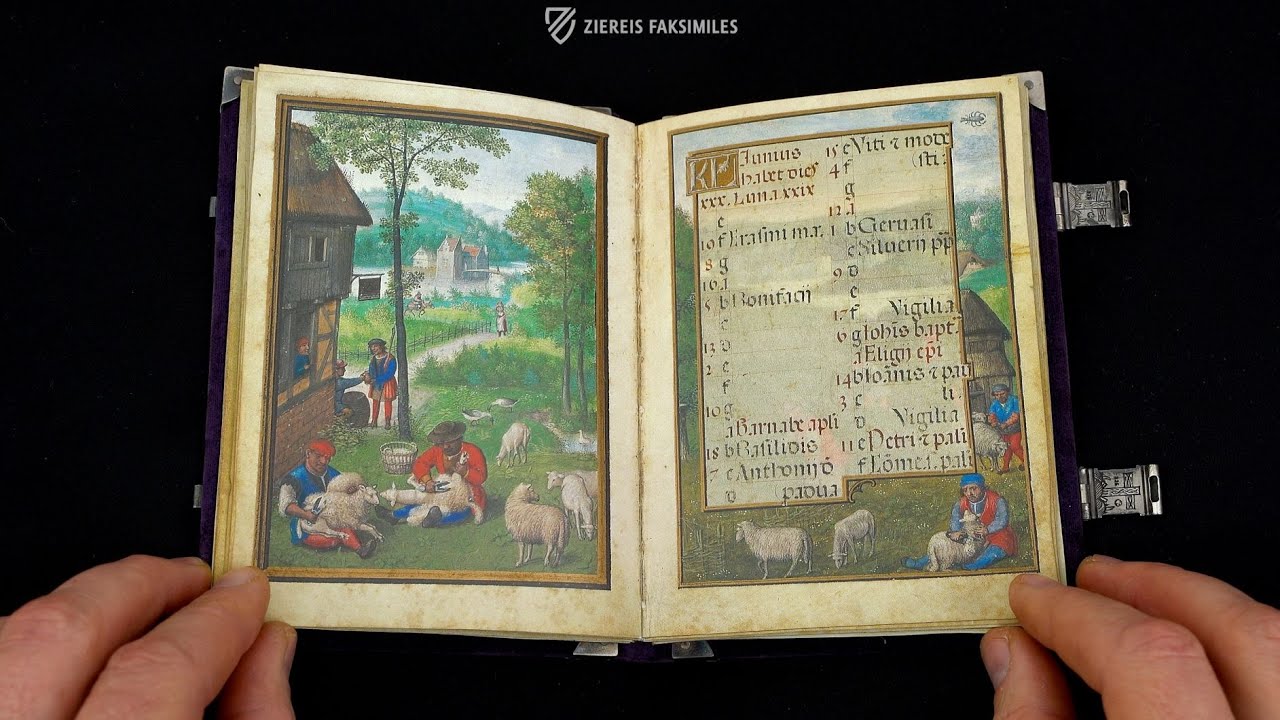 ZIEREIS FAKSIMILES
KL Iunius
habet dies
xxx. Luna xxix
e
19 f Erasmi mar.
8 g
16 A
5 b Bonifacij
c
13 d
2 e
f
10 g
A Barnabe apli
18 b Basilidis
7 c Anthonij d
d padua
15 e Viti ⁊ mode
4 f sti
g
12 A
1 b Gervasi
c Silverij pp
9 d
e
17 f Vigilia
6 g Iohis bapt.
A Eligij epi
14 b Ioānis ⁊ pau
3 c li.
d Vigilia
11 e Petri ⁊ pali
f pali